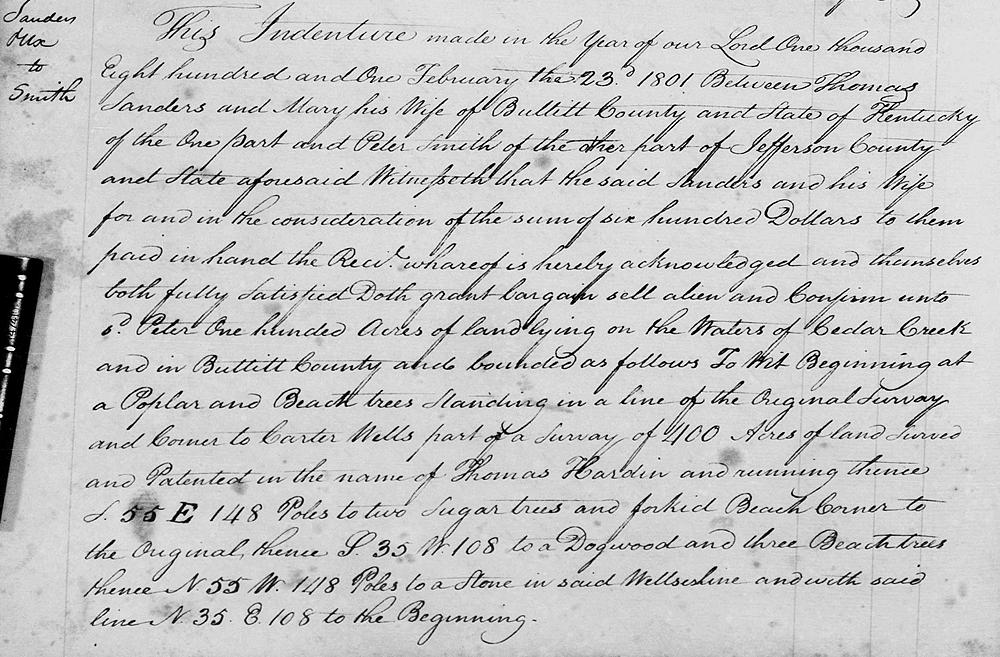 Sanders
Ux
to
Smith
This Indenture made in the Year of our Lord One thousand
Eight hundred and One February the 23d 1801 Between Thomas
Sanders and Mary his Wife of Bullitt County and State of Kentucky
of the One part and Peter Smith of the other part of Jefferson County
and State aforesaid Witnesseth that the said Sanders and his Wife
for and in the consideration of the sum of six hundred Dollars to them
paid in hand the Recit. whareof is hereby acknowledged and themselves
both fully Satisfied Doth grant bargain sell alien and Confirm unto
sd Peter One hunded Acres of land lying on the Waters of Cedar Creek
and in Bullitt County and bounded as follows To Wit Beginning at
a Poplar and Beach trees Standing in a line of the Original Survay
and Corner to Carter Wells part of a Survay of 400 Acres of land Surved
and Patented in the name of Thomas Hardin and running thence
S. 55 E 148 Poles to two Sugar trees and forkid Beach Corner to
the Original, thence S 35 W 108 to a Dogwood and three Beach trees
thence N. 55 W. 148 Poles to a Stone in said Wellses line and with said
line N. 35. E. 108 to the Beginning.